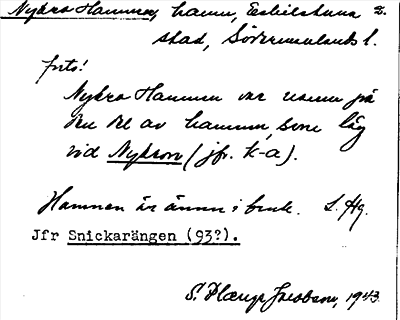 Nykro Hammen, hamn, Eskilstuna s.
stad, Södermanlands l.
forts!
Nykro Hammen var namn på
den del av hamnen, som låg
vid Nykron (jfr. k-a).
Hamnen är ännu i bruk. L. Hg.
Jfr Snickarängen (93?).
S. Plænge Jacobson, 1943